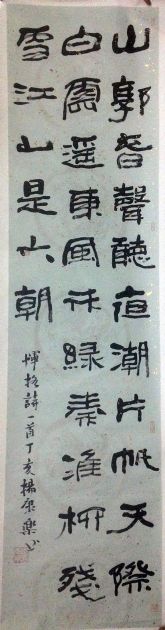 山郭旾聲聽夜潮片帆天際
白雲遥東風未緑秦淮柳殘
雪江山是六朝
惲格詩一首丁亥楊康樂书